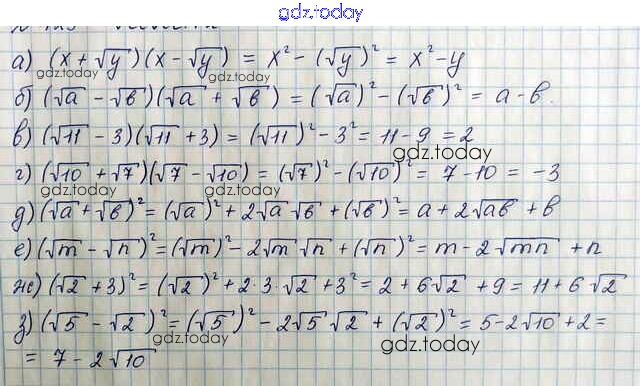 gdz.today
а) (x + √y)(x - √y) = x² - (√y)² = x² - y
gdz.today
gdz.today
б) (√a - √b)(√a + √b) = (√a)² - (√b)² = a - b.
в) (√11 - 3)(√11 + 3) = (√11)² - 3² = 11 - 9 = 2
gdz.today
г) (√10 + √7)(√7 - √10) = (√7)² - (√10)² = 7 - 10 = -3
gdz.today
gdz.today
д) (√a + √b)² = (√a)² + 2√a √b + (√b)² = a + 2√ab + b
gdz.today
е) (√m - √n)² = (√m)² - 2√m √n + (√n)² = m - 2√mn + n
ж) (√2 + 3)² = (√2)² + 2·3·√2 + 3² = 2 + 6√2 + 9 = 11 + 6√2
gdz.today
gdz.today
з) (√5 - √2)² = (√5)² - 2√5 √2 + (√2)² = 5 - 2√10 + 2 =
gdz.today
gdz.today
= 7 - 2√10